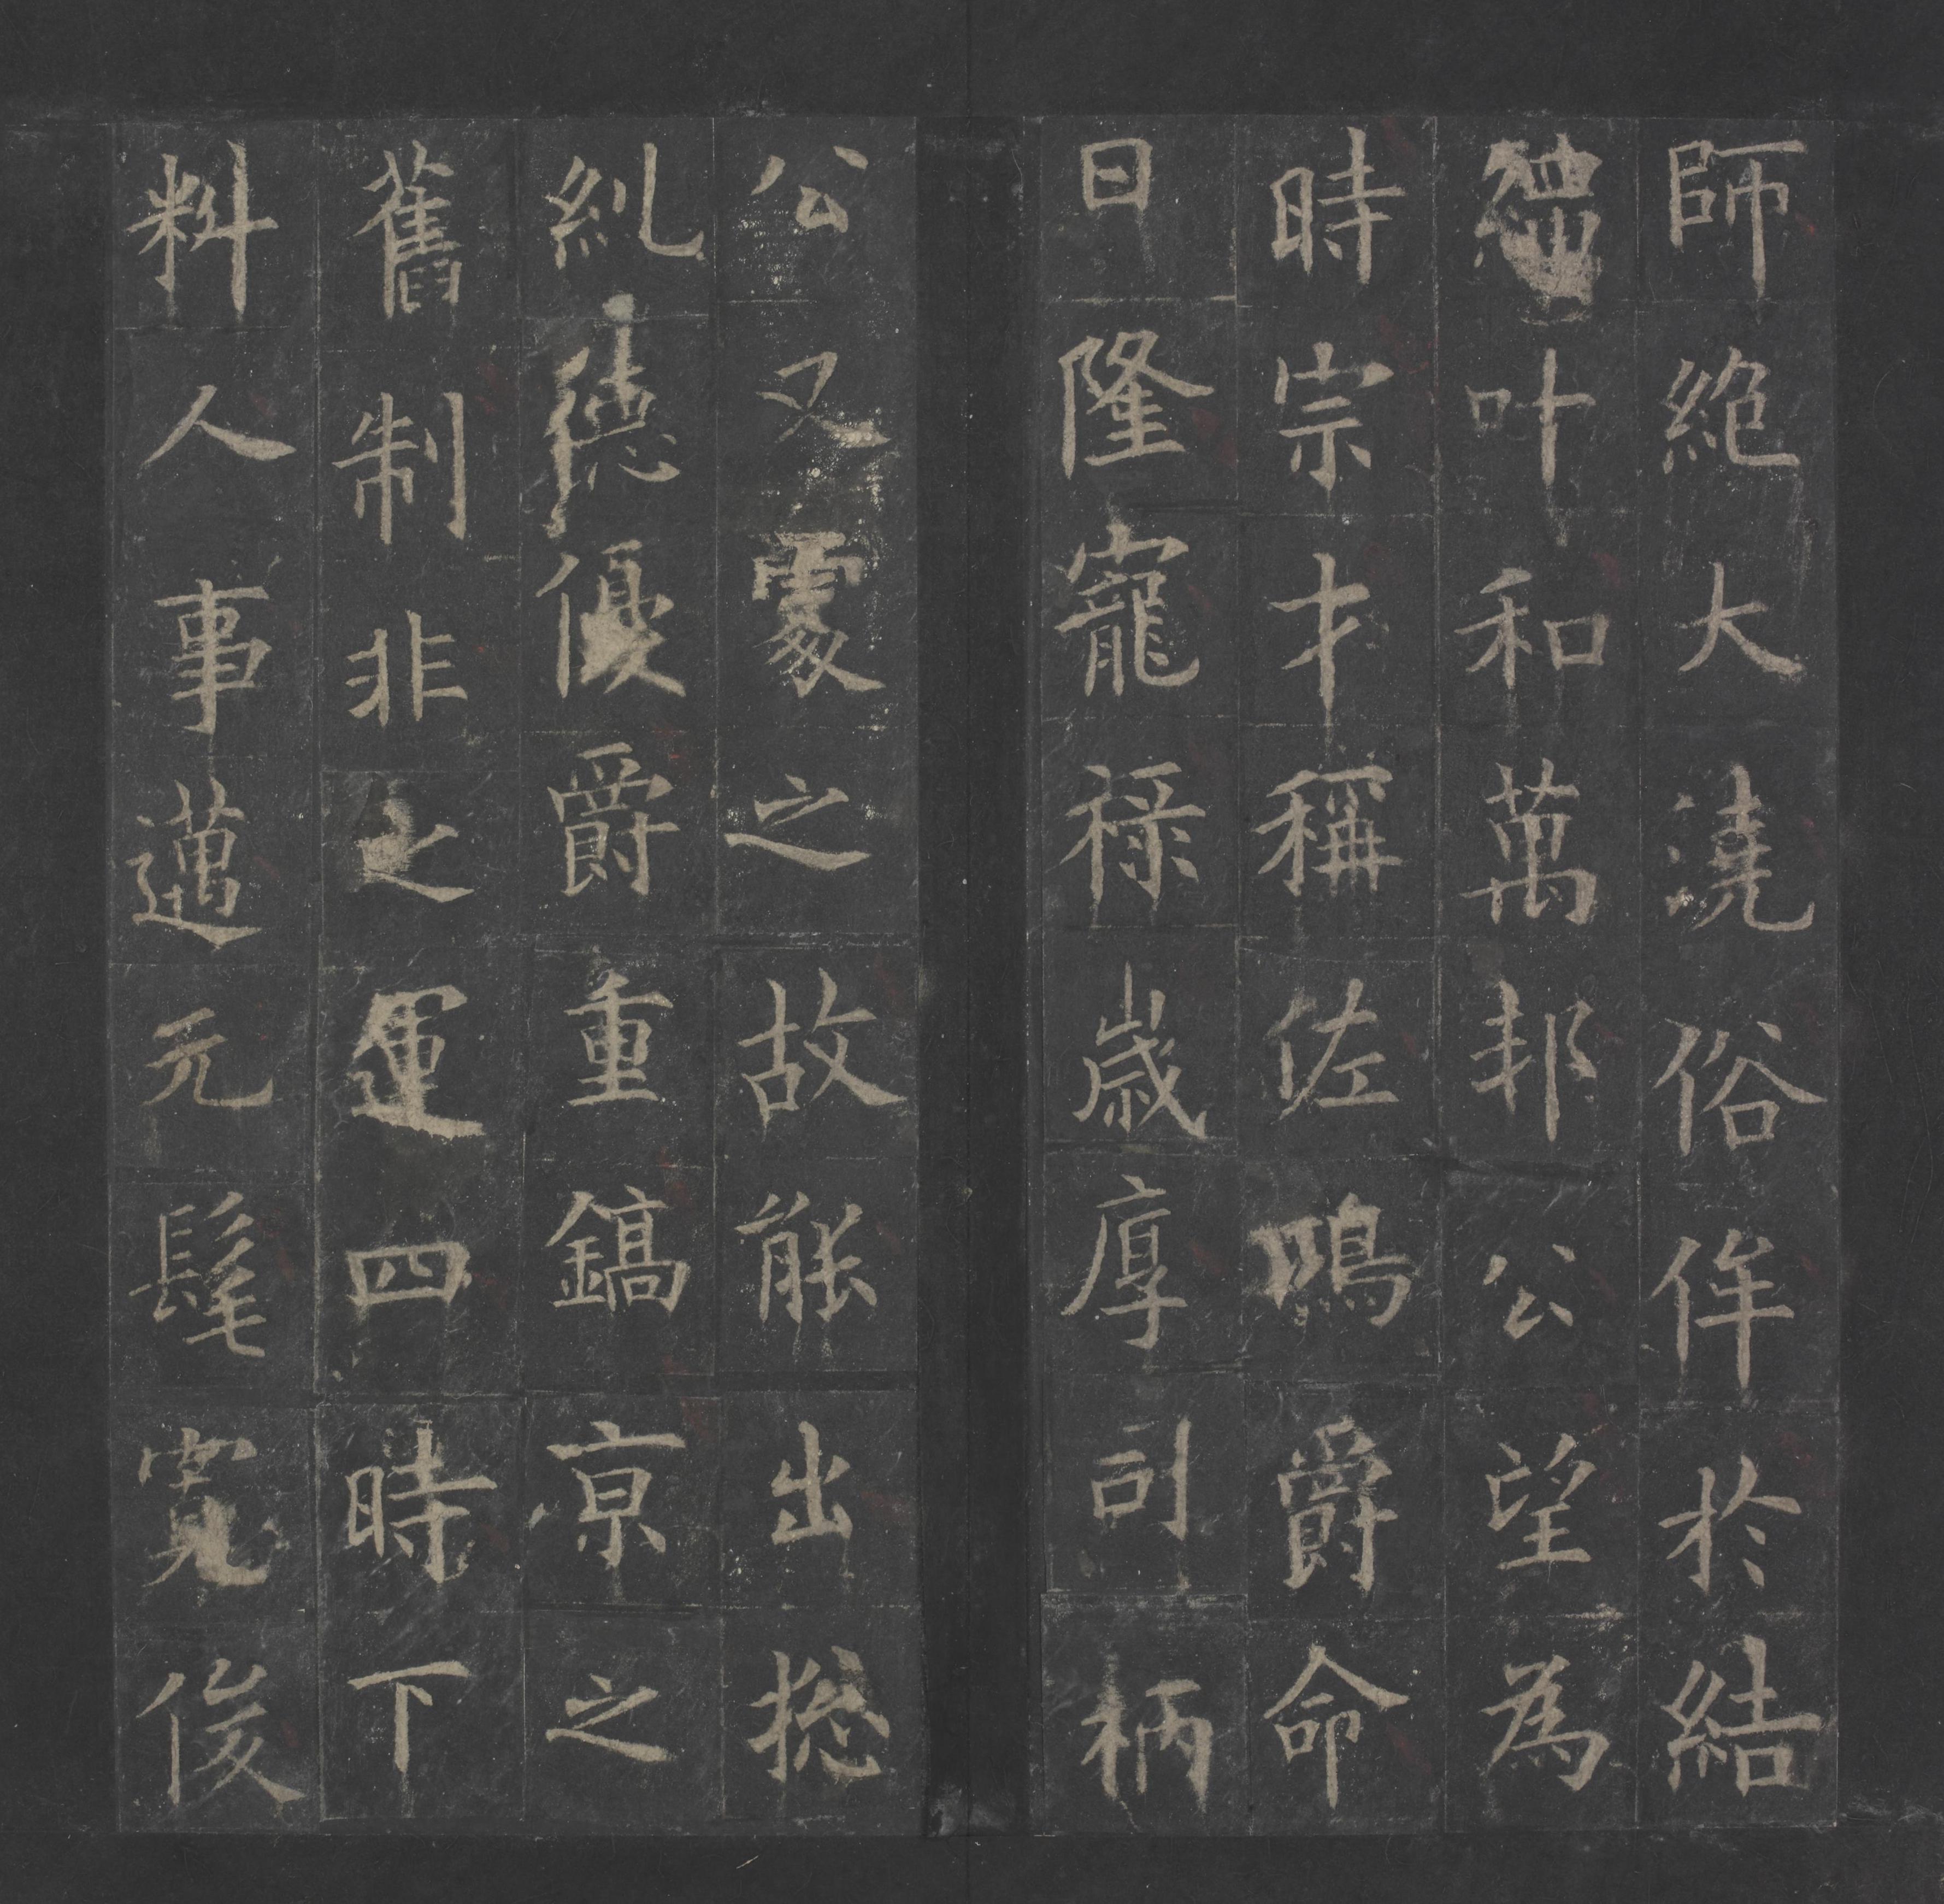 師絶大澆俗侔於結
繩叶和萬邦公望為
時宗才稱佐鳴爵命
日隆寵祿歲厚司柄
公又處之故能出揔
糺德優爵重鎬京之
舊制非止運四時下
料人事邁元髦寬俊